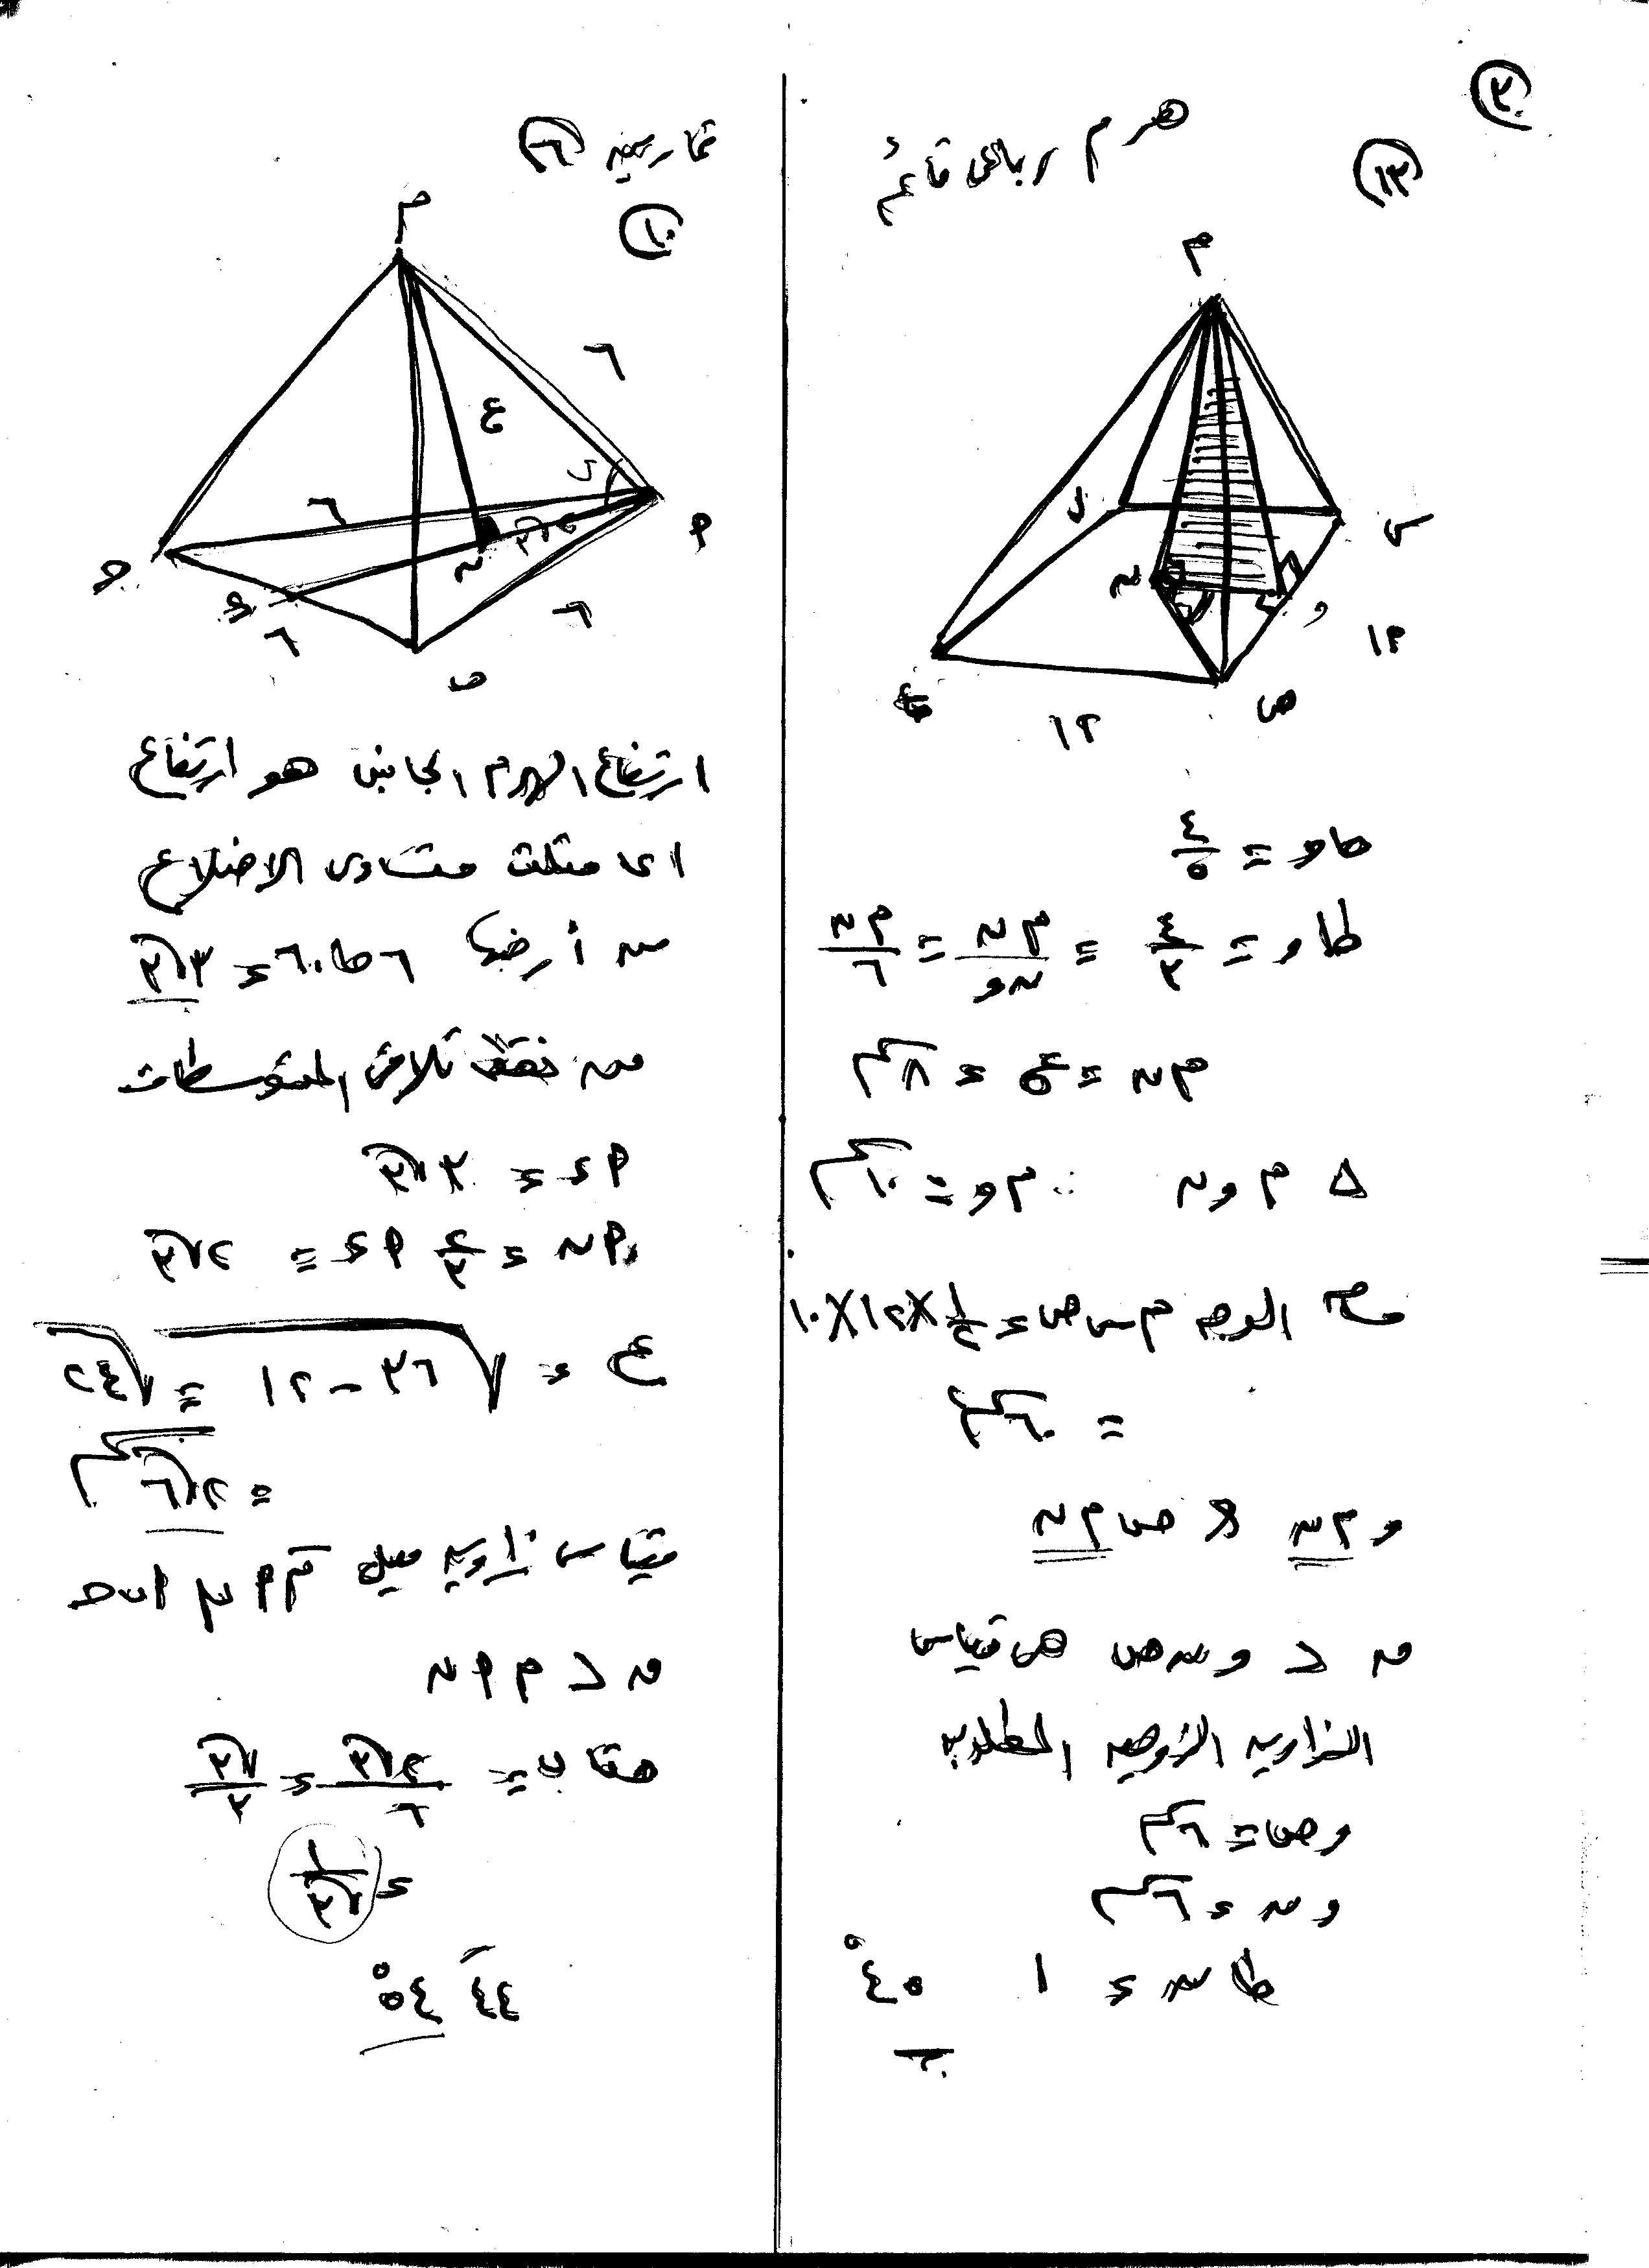 ٣
١٣
هرم رباعى قائم
م
س
ل
ن
و
١٢
ص
ع
١٢
حا و = ٤/٥
طا و = ٤/٣ = م ن/ن و = م ن/٦
م ن = ع = ٨ سم
△ م و ن ∴ م و = ١٠ سم
مساحة الوجه م س ص = ١/٢ × ١٢ × ١٠
= ٦٠ سم
ص م ن
هى قياس
الزاويه الزوجيه المطلوبه
و ص = ٦ سم
و ن = ٦ سم
طا س = ١ ٤٥°
تمارين ٦
١٠
م
٦
ع
ى
٦
٢√٣
ن
أ
ح
ء
٦
٦
ب
ارتفاع الهرم الجانبى هو ارتفاع
اى مثلث متساوى الاضلاع
من أرضها ٦ حا ٦٠ = ٣√٣
ن نقطة تلاقى المتوسطات
أ ء = ٣√٣
أ ن = ٢/٣ أ ء = ٢√٣
ع = √٣٦ - ١٢ = √٢٤
= ٢√٦ سم
قياس زاويه ميل م أ على أ ب ح
ق ∠ م أ ن
حتا ى = ٢√٣/٦ = √٣/٣
= ١/√٣
٤٤َ ٥٤°